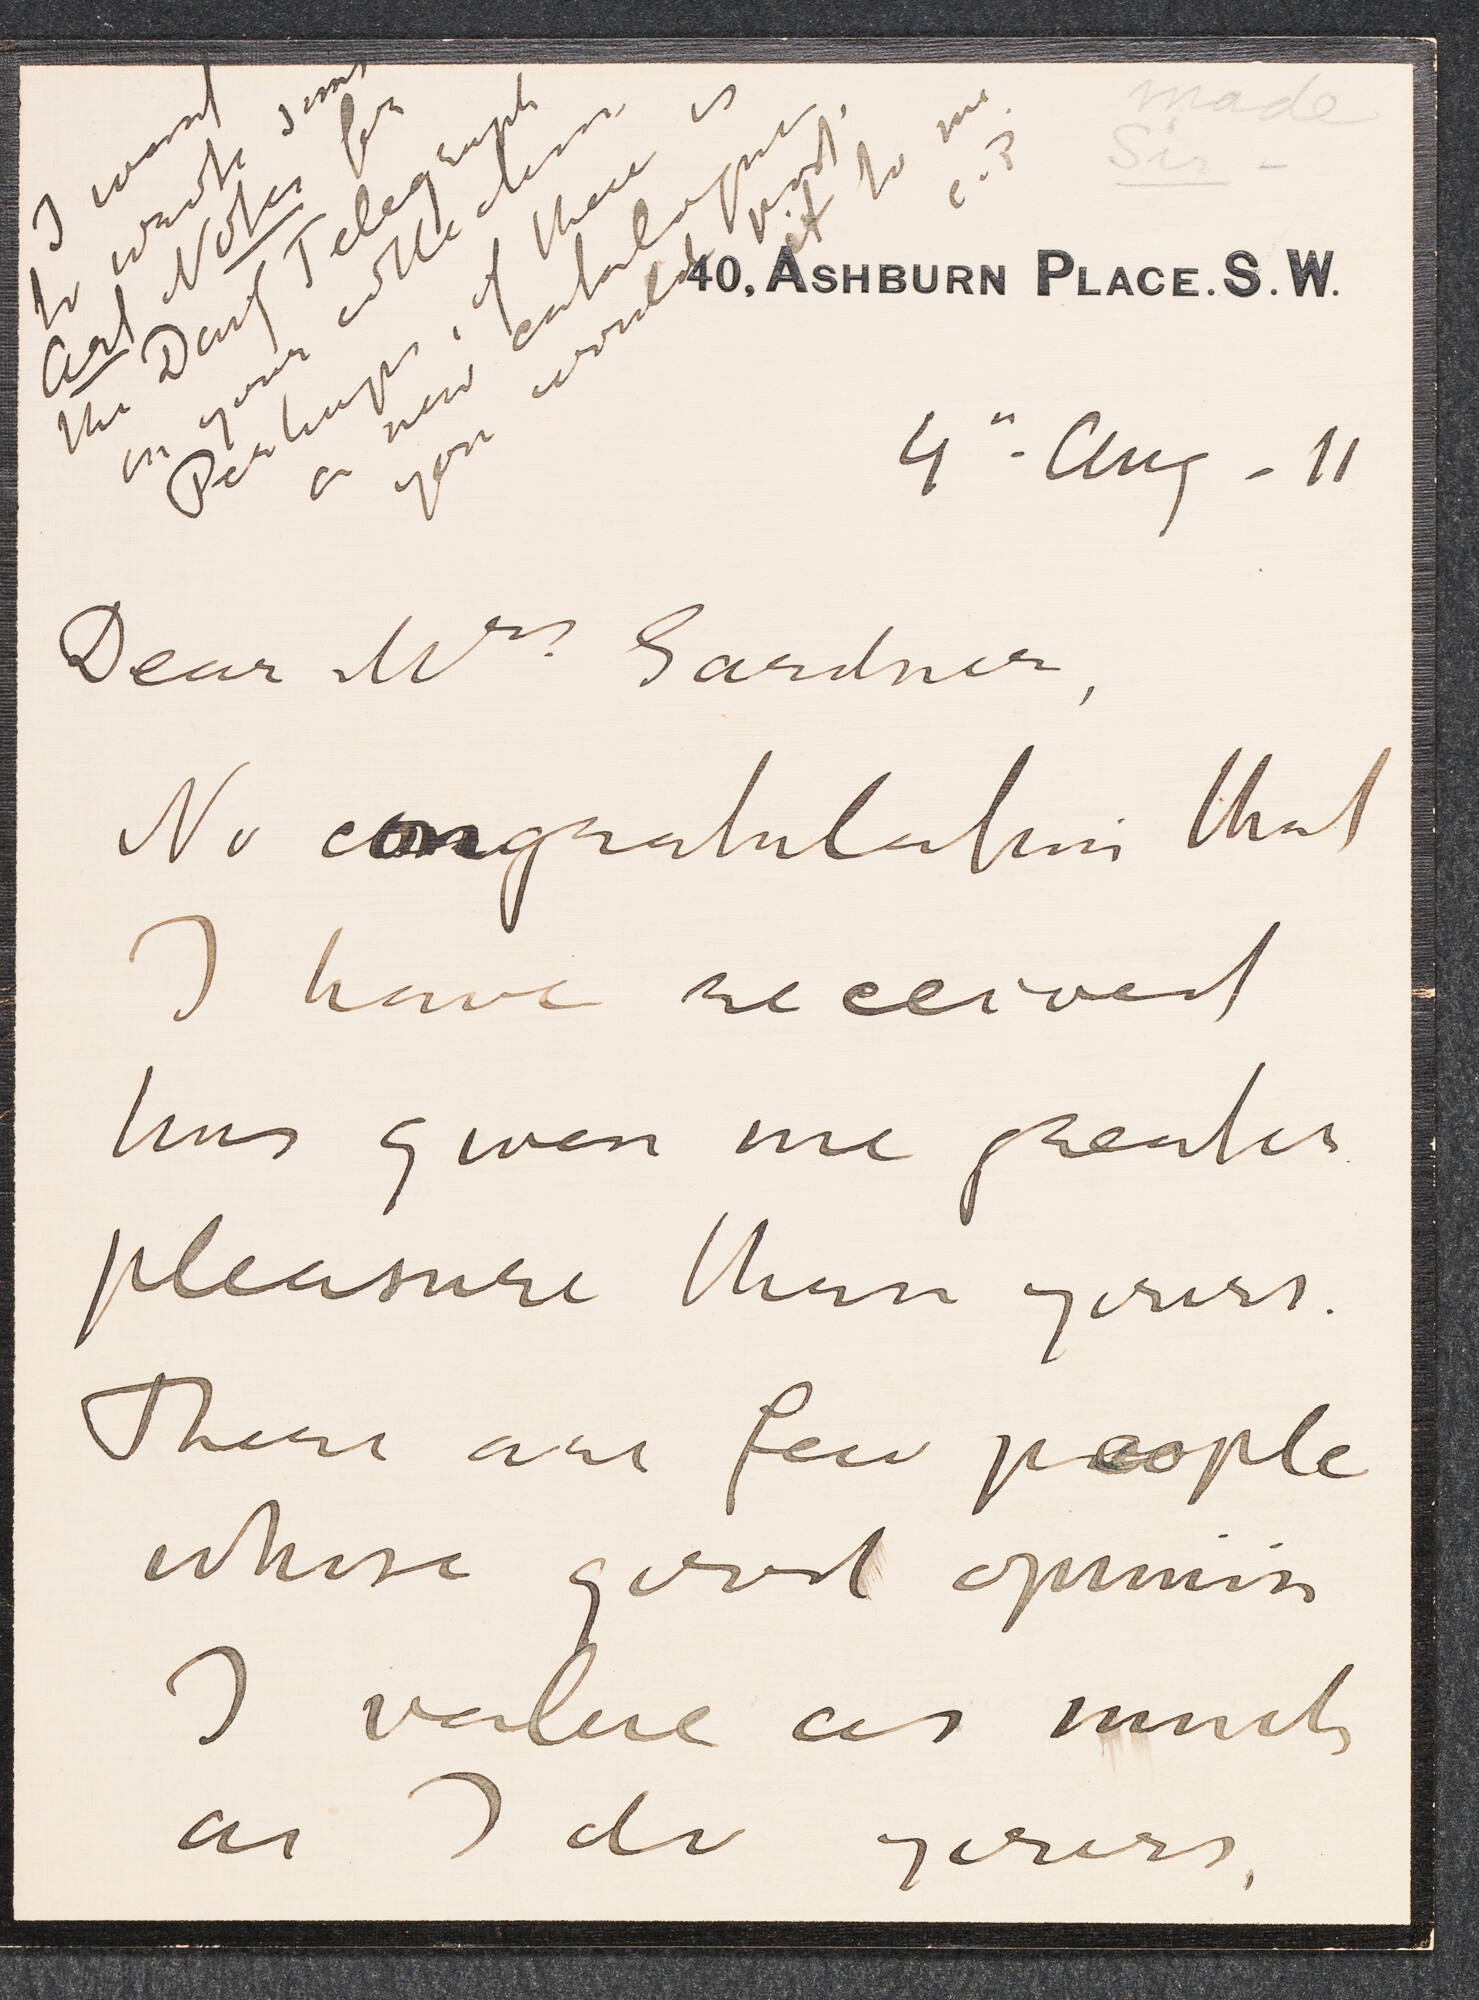 I want
to write some
Art Notes for
the Daily Telegraph
on your collection.
Perhaps, if there is
a new catalogue
you would post
it to me.
C.P.
made
Sir -
40, ASHBURN PLACE. S. W.
4" - Aug - 11
Dear Mrs. Gardner,
No congratulation that
I have received
has given me greater
pleasure than yours.
There are few people
whose good opinion
I value as much
as I do yours,